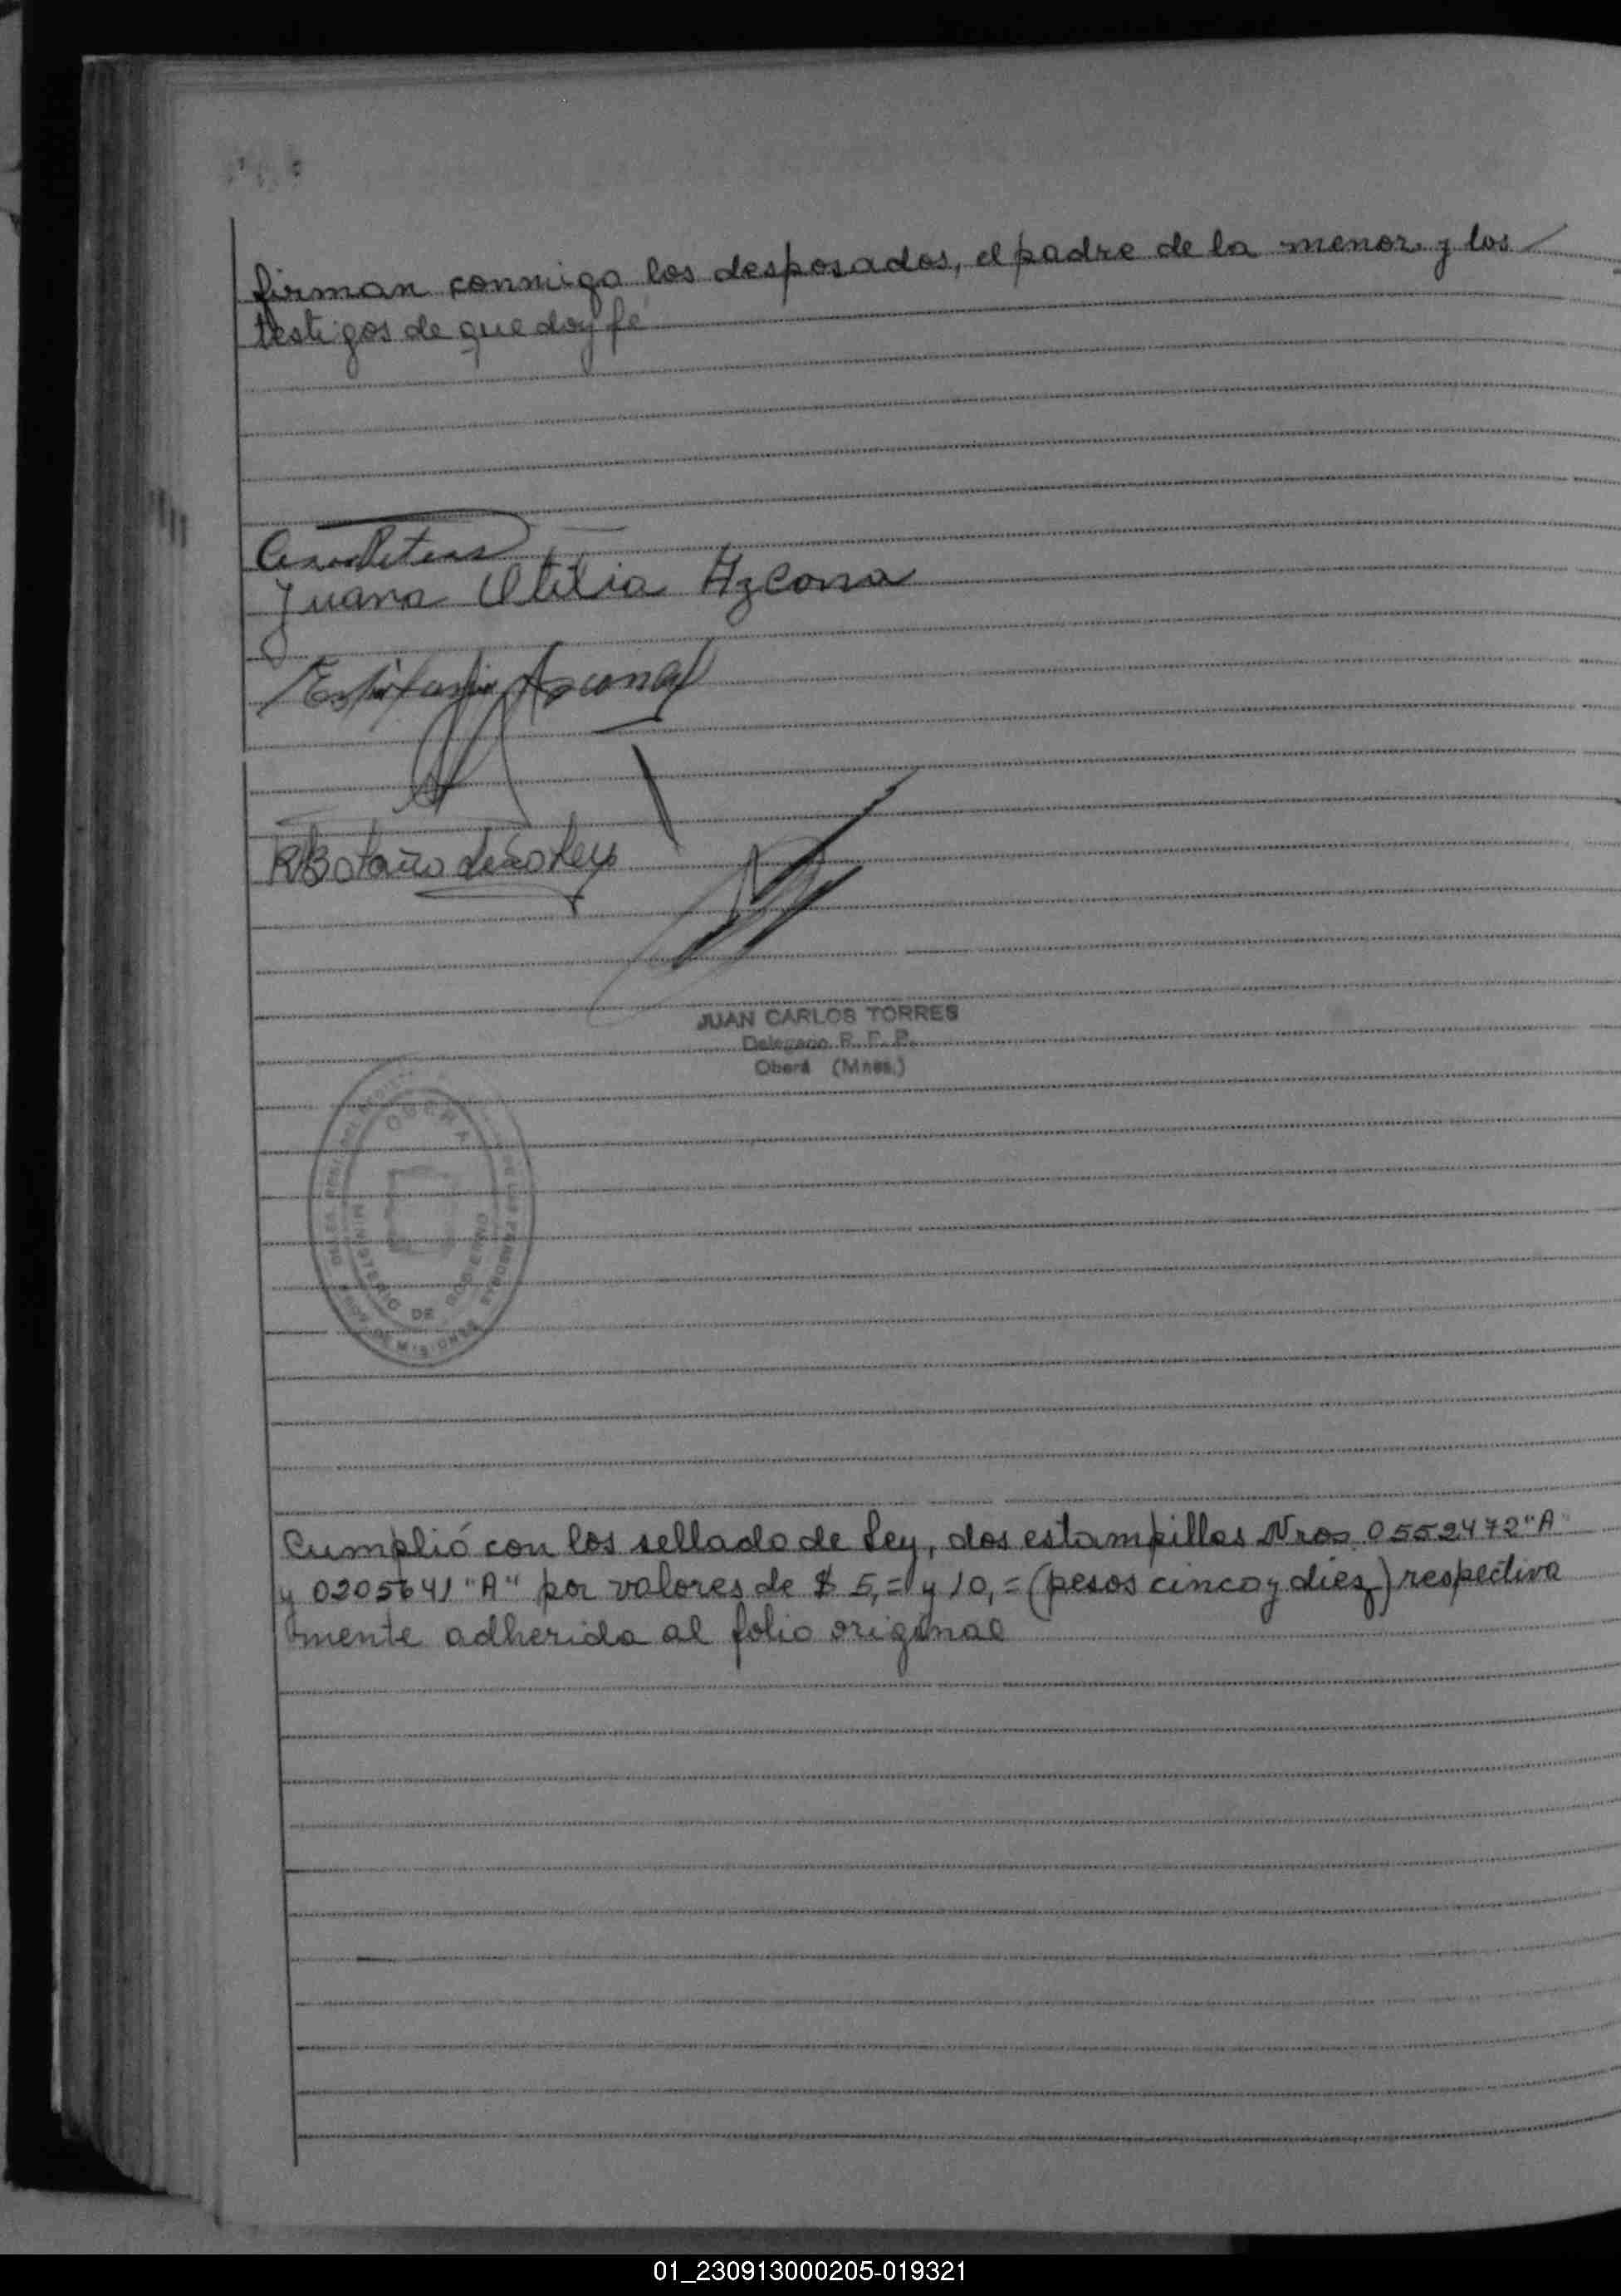 firman conmigo los desposados, el padre de la menor y los
testigos de que doy fé
Juana Otilia Azcona
Azcona
JUAN CARLOS TORRES
Delegado R. P. P.
Oberá (Mnes.)
OBERA
MINISTERIO DE GOBIERNO
DE MISIONES
Cumplió con los sellado de Ley, dos estampillas Nros. 0552472 "A"
y 0205641 "A" por valores de $ 5,= y 10,= (pesos cinco y diéz) respectiva
mente adherida al folio original
01_230913000205-019321